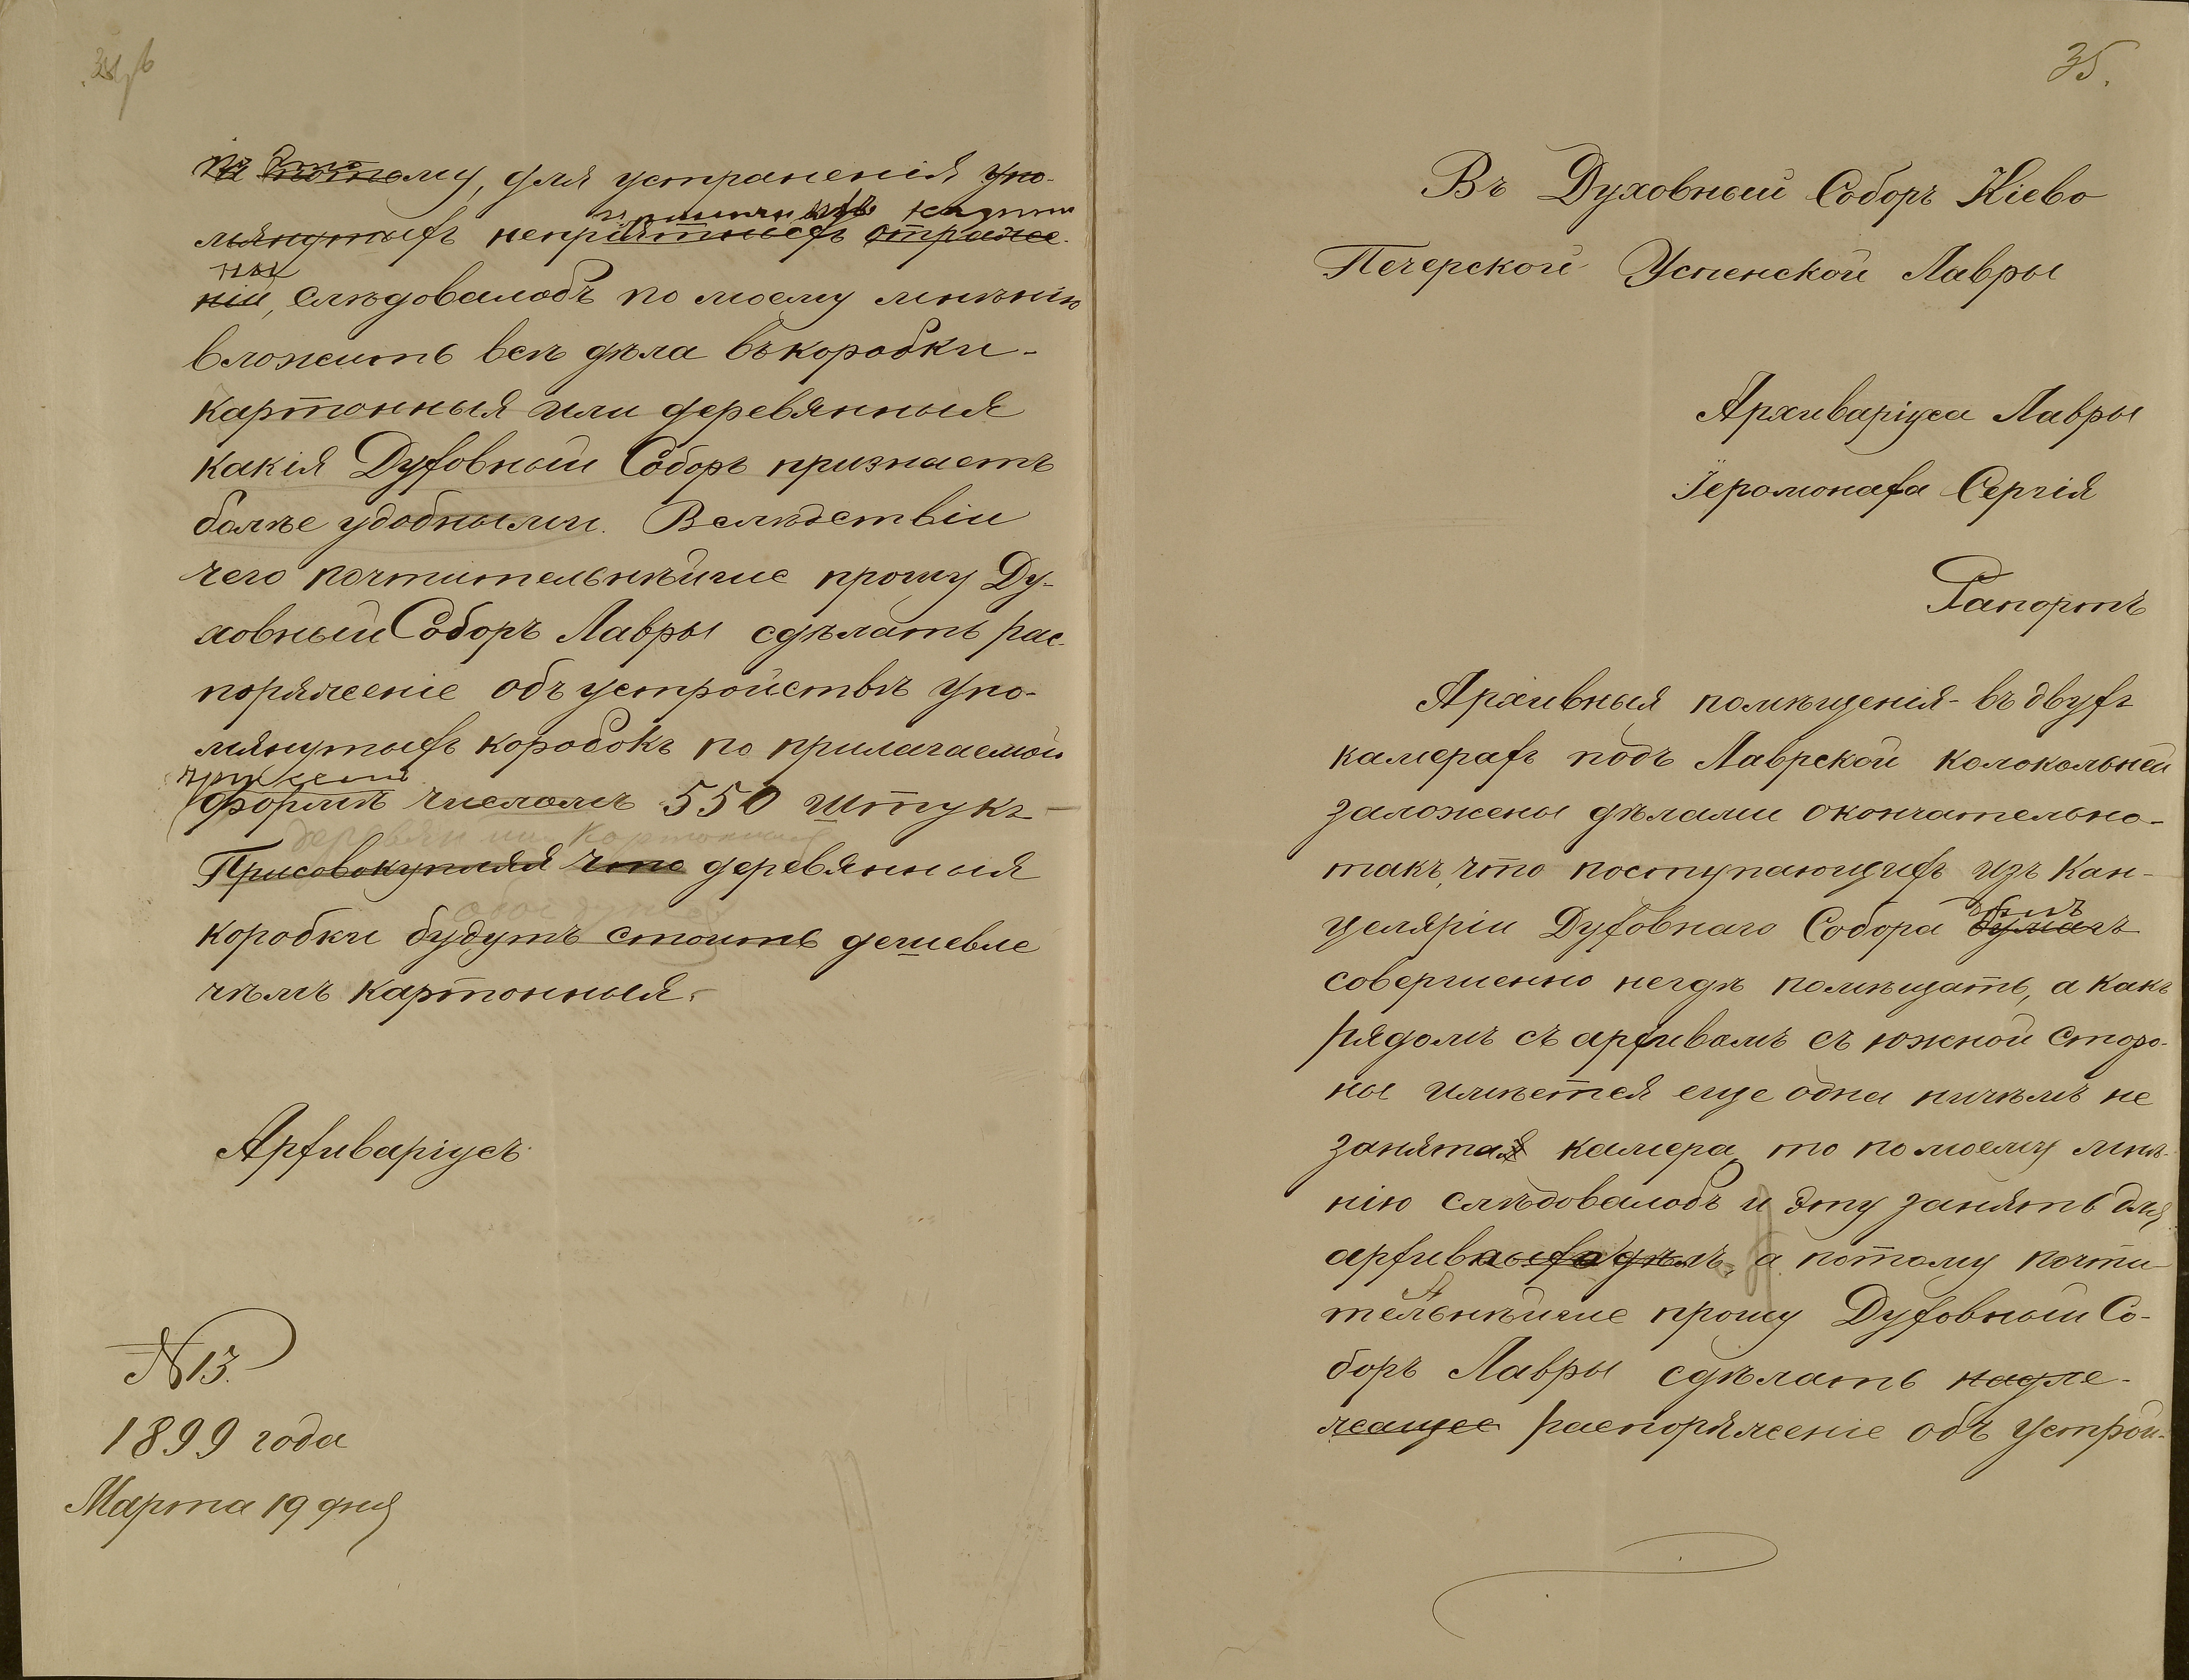 потому, для устраненія упо-
мянутыхъ непріятныхъ отраже-
ній, слѣдовалобъ по моему мнѣнію
вложить всѣ дѣла въ коробки-
картонныя или деревянныя
какія Духовный Соборъ признаетъ
болѣе удобными. Вслѣдствіи
чего почтительнѣйше прошу Ду-
ховный Соборъ Лавры сдѣлать рас-
поряженіе объ устройствѣ упо-
мянутыхъ коробокъ по прилагаемой
формѣ числомъ 550 штукъ
деревян или картонныя
Присовокупляя что деревянныя
коробки будутъ стоить дешевле
чѣмъ картонныя.
Архиваріусъ
N 13.
1899 года
Марта 19 дня
35.
Въ Духовный Соборъ Кіево
Печерской Успенской Лавры
Архиваріуса Лавры
Іеромонаха Сергія
Рапортъ
Архивныя помѣщенія - въ двухъ
камерахъ подъ Лаврской колокольней
заложены дѣлами окончательно-
такъ, что поступающихъ изъ Кан-
целяріи Духовнаго Собора бумагъ
совершенно негдѣ помѣщать, а какъ
рядомъ съ архивомъ съ южной сторо-
ны имѣется еще одна ничѣмъ не
занятая камера, то по моему мнѣ-
нію слѣдовалобъ и эту занять для
архивныхъ дѣлъ, а потому почти-
тельнѣйше прошу Духовный Со-
боръ Лавры сдѣлать надле-
жащее распоряженіе объ устрой-